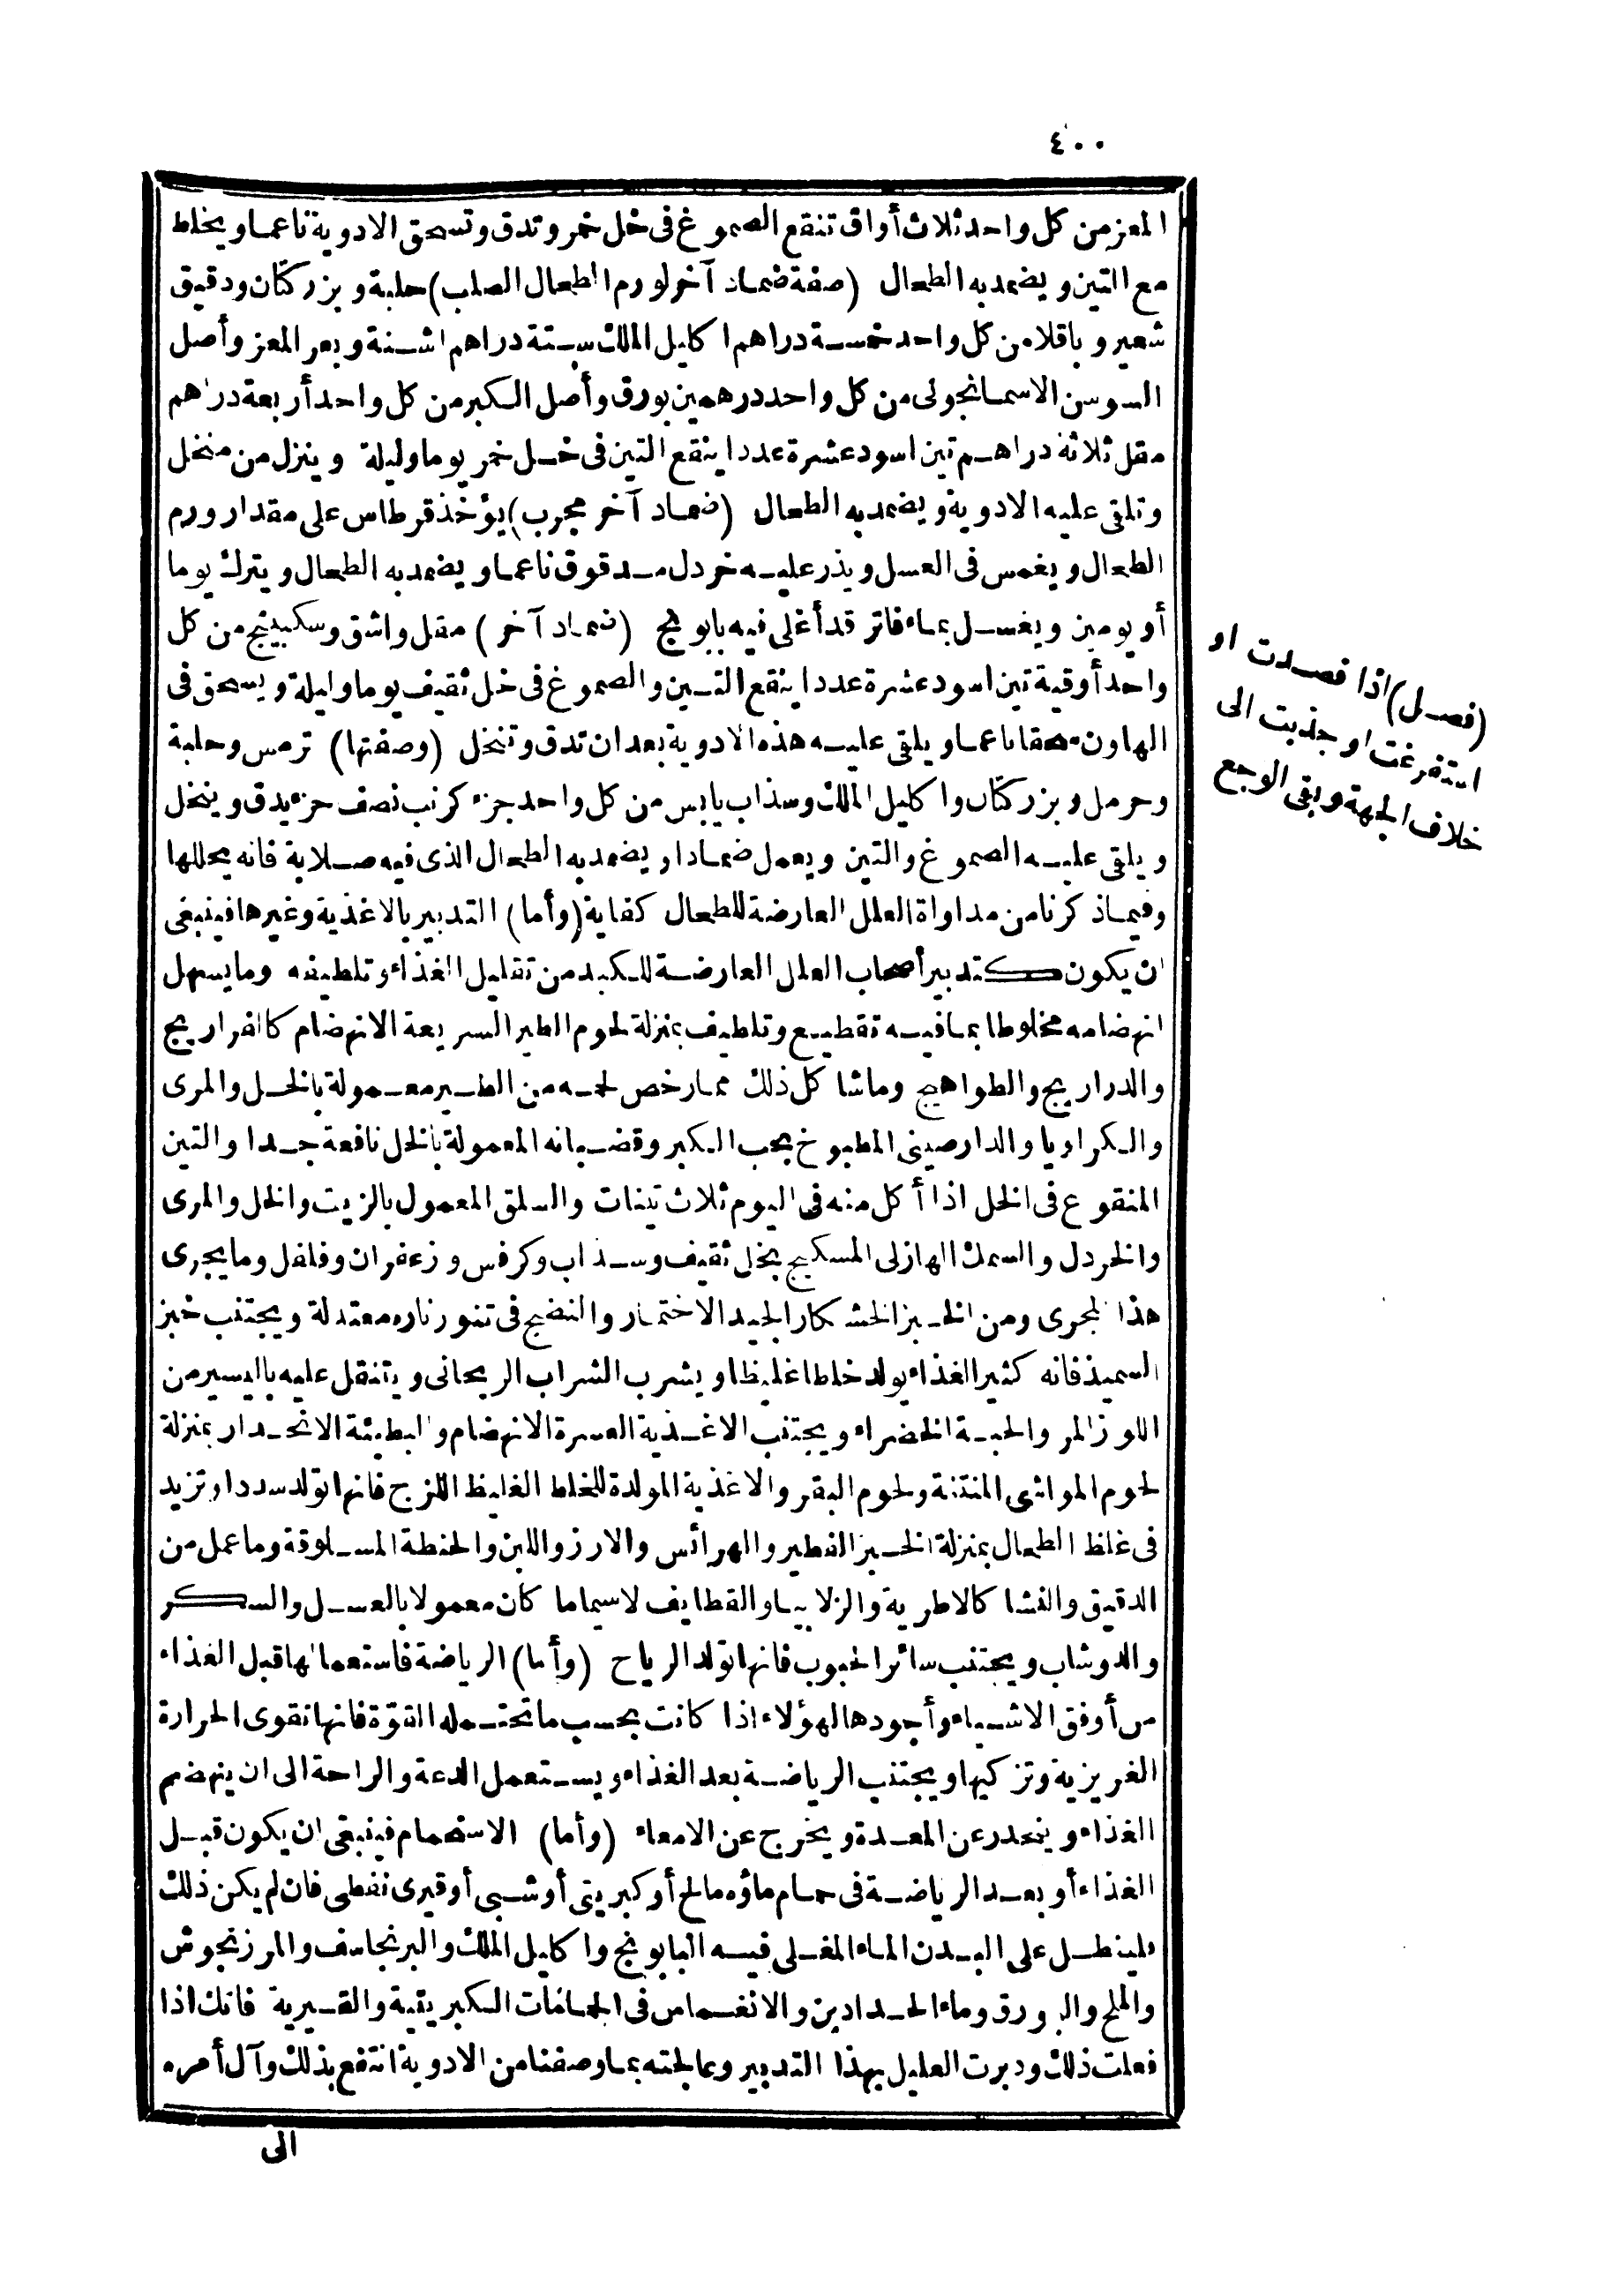 ٤٠٠
المعز من كل واحد ثلاث أواق تنقع الصموغ فى خل خمر وتدق وتسحق الادوية ناعما ويخلط
مع التين ويضمد به الطحال (صفة ضماد آخر لورم الطحال الصلب) حلبة وبزر كتان ودقيق
شعير وباقلا من كل واحد خمسة دراهم اكليل الملك ستة دراهم اشنة وبعر المعز وأصل
السوسن الاسمانجونى من كل واحد درهمين بورق وأصل الكبر من كل واحد أربعة دراهم
مقل ثلاثة دراهم تين اسود عشرة عددا ينقع التين فى خل خمر يوما وليلة وينزل من منخل
وتلقى عليه الادوية ويضمد به الطحال (ضماد آخر مجرب) يؤخذ قرطاس على مقدار ورم
الطحال ويغمس فى العسل ويذر عليه خردل مدقوق ناعما ويضمد به الطحال ويترك يوما
أو يومين ويغسل بماء فاتر قد أغلى فيه بابونج (ضماد آخر) مقل واشق وسكبينج من كل
واحد أوقية تين اسود عشرة عددا ينقع التين والصموغ فى خل ثقيف يوما وليلة ويسحق فى
الهاون سحقا ناعما ويلقى عليه هذه الادوية بعد ان تدق وتنخل (وصفتها) ترمس وحلبة
وحرمل وبزر كتان واكليل الملك وسذاب يابس من كل واحد جزء كرنب نصف جزء يدق وينخل
ويلقى عليه الصموغ والتين ويعمل ضمادا ويضمد به الطحال الذى فيه صلابة فانه يحللها
وفيما ذكرنا من مداواة العلل العارضة للطحال كفاية (وأما) التدبير بالاغذية وغيرها فينبغى
ان يكون كتدبير أصحاب العلل العارضة للكبد من تقليل الغذاء وتلطيفه وما يسهل
انهضامه مخلوطا بما فيه تقطيع وتلطيف بمنزلة لحوم الطير السريعة الانهضام كالفراريج
والدراريج والطواهيج وماشا كل ذلك مما رخص لحمه من الطير معمولة بالخل والمرى
والكراويا والدارصينى المطبوخ بحب الكبر وقضبانه المعمولة بالخل نافعة جدا والتين
المنقوع فى الخل اذا أكل منه فى اليوم ثلاث تينات والسلق المعمول بالزيت والخل والمرى
والخردل والسمك الهازلى المسكبج بخل ثقيف وسذاب وكرفس وزعفران وفلفل وما يجرى
هذا المجرى ومن الخبز الخشكار الجيد الاختمار والنضج فى تنور ناره معتدلة ويجتنب خبز
السميذ فانه كثير الغذاء يولد خلطا غليظا ويشرب الشراب الريحانى ويتنقل عليه باليسير من
اللوز المر والحبة الخضراء ويجتنب الاغذية العسرة الانهضام والبطيئة الانحدار بمنزلة
لحوم المواشى المنتنة ولحوم البقر والاغذية المولدة للخلط الغليظ اللزج فانها تولد سددا وتزيد
فى غلظ الطحال بمنزلة الخبز الفطير والهرائس والارز واللبن والحنطة المسلوقة وما عمل من
الدقيق والنشا كالاطرية والزلابيا والقطايف لاسيما ما كان معمولا بالعسل والسكر
والدوشاب ويجتنب سائر الحبوب فانها تولد الرياح (وأما) الرياضة فاستعمالها قبل الغذاء
من أوفق الاشياء وأجودها لهؤلاء اذا كانت بحسب ما تحتمله القوّة فانها تقوى الحرارة
الغريزية وتزكيها ويجتنب الرياضة بعد الغذاء ويستعمل الدعة والراحة الى ان ينهضم
الغذاء وينحدر عن المعدة ويخرج عن الامعاء (وأما) الاستحمام فينبغى ان يكون قبل
الغذاء أو بعد الرياضة فى حمام ماؤه مالح أو كبريتى أو شبى أو قيرى نفطى فان لم يكن ذلك
فلينطل على البدن الماء المغلى فيه البابونج واكليل الملك والبرنجاسف والمرزنجوش
والملح والبورق وماء الحدادين والانغماس فى الحمامات الكبريتية والقيرية فانك اذا
فعلت ذلك ودبرت العليل بهذا التدبير وعالجته بما وصفنا من الادوية انتفع بذلك وآل أمره
الى
(فصل) اذا فصدت او
استفرغت او جذبت الى
خلاف الجهة وبقى الوجع